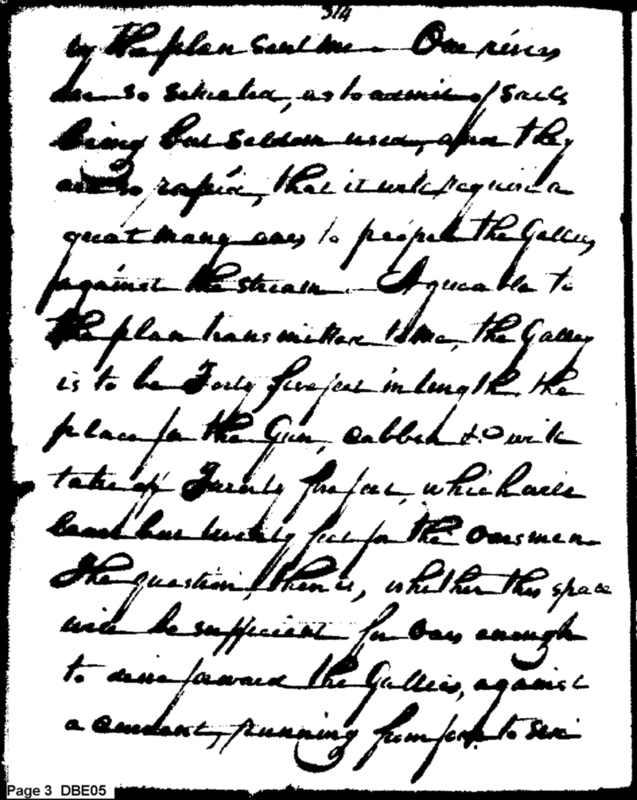 314
by the plan sent me. Our rivers
are so situated, as to admit of sails
being but seldom used, and they
are so rapid, that it will require a
great many oars to propel the Gallies
against the stream. Agreeable to
the plan transmitted to me, the Galley
is to be Forty five feet in length, the
place for the Gun, cabben &c will
take off Twenty five feet, which will
leave but twenty feet for the Oarsmen.
The question, then is, whether this space
will be sufficient for Oars enough
to drive forward the Gallies, against
a current, running from four to six
Page 3 DBE05